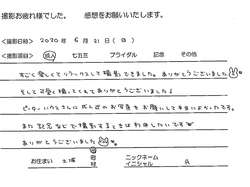 撮影お疲れ様でした。 感想をお願いいたします。
<撮影日時> 2020 年 6 月 21 日 (日)
<撮影項目> 成人 七五三 ブライダル 記念 その他
すごく楽しくてリラックスして撮影できました。ありがとうございました
そして可愛く撮ってくれてありがとうございました♪
ピーターハウスさんに成人式のお写真をお願いして本当によかったです。
また記念などで撮影するときは利用したいです
ありがとうございました
お住まい 土浦 市 ニックネーム
町 イニシャル A